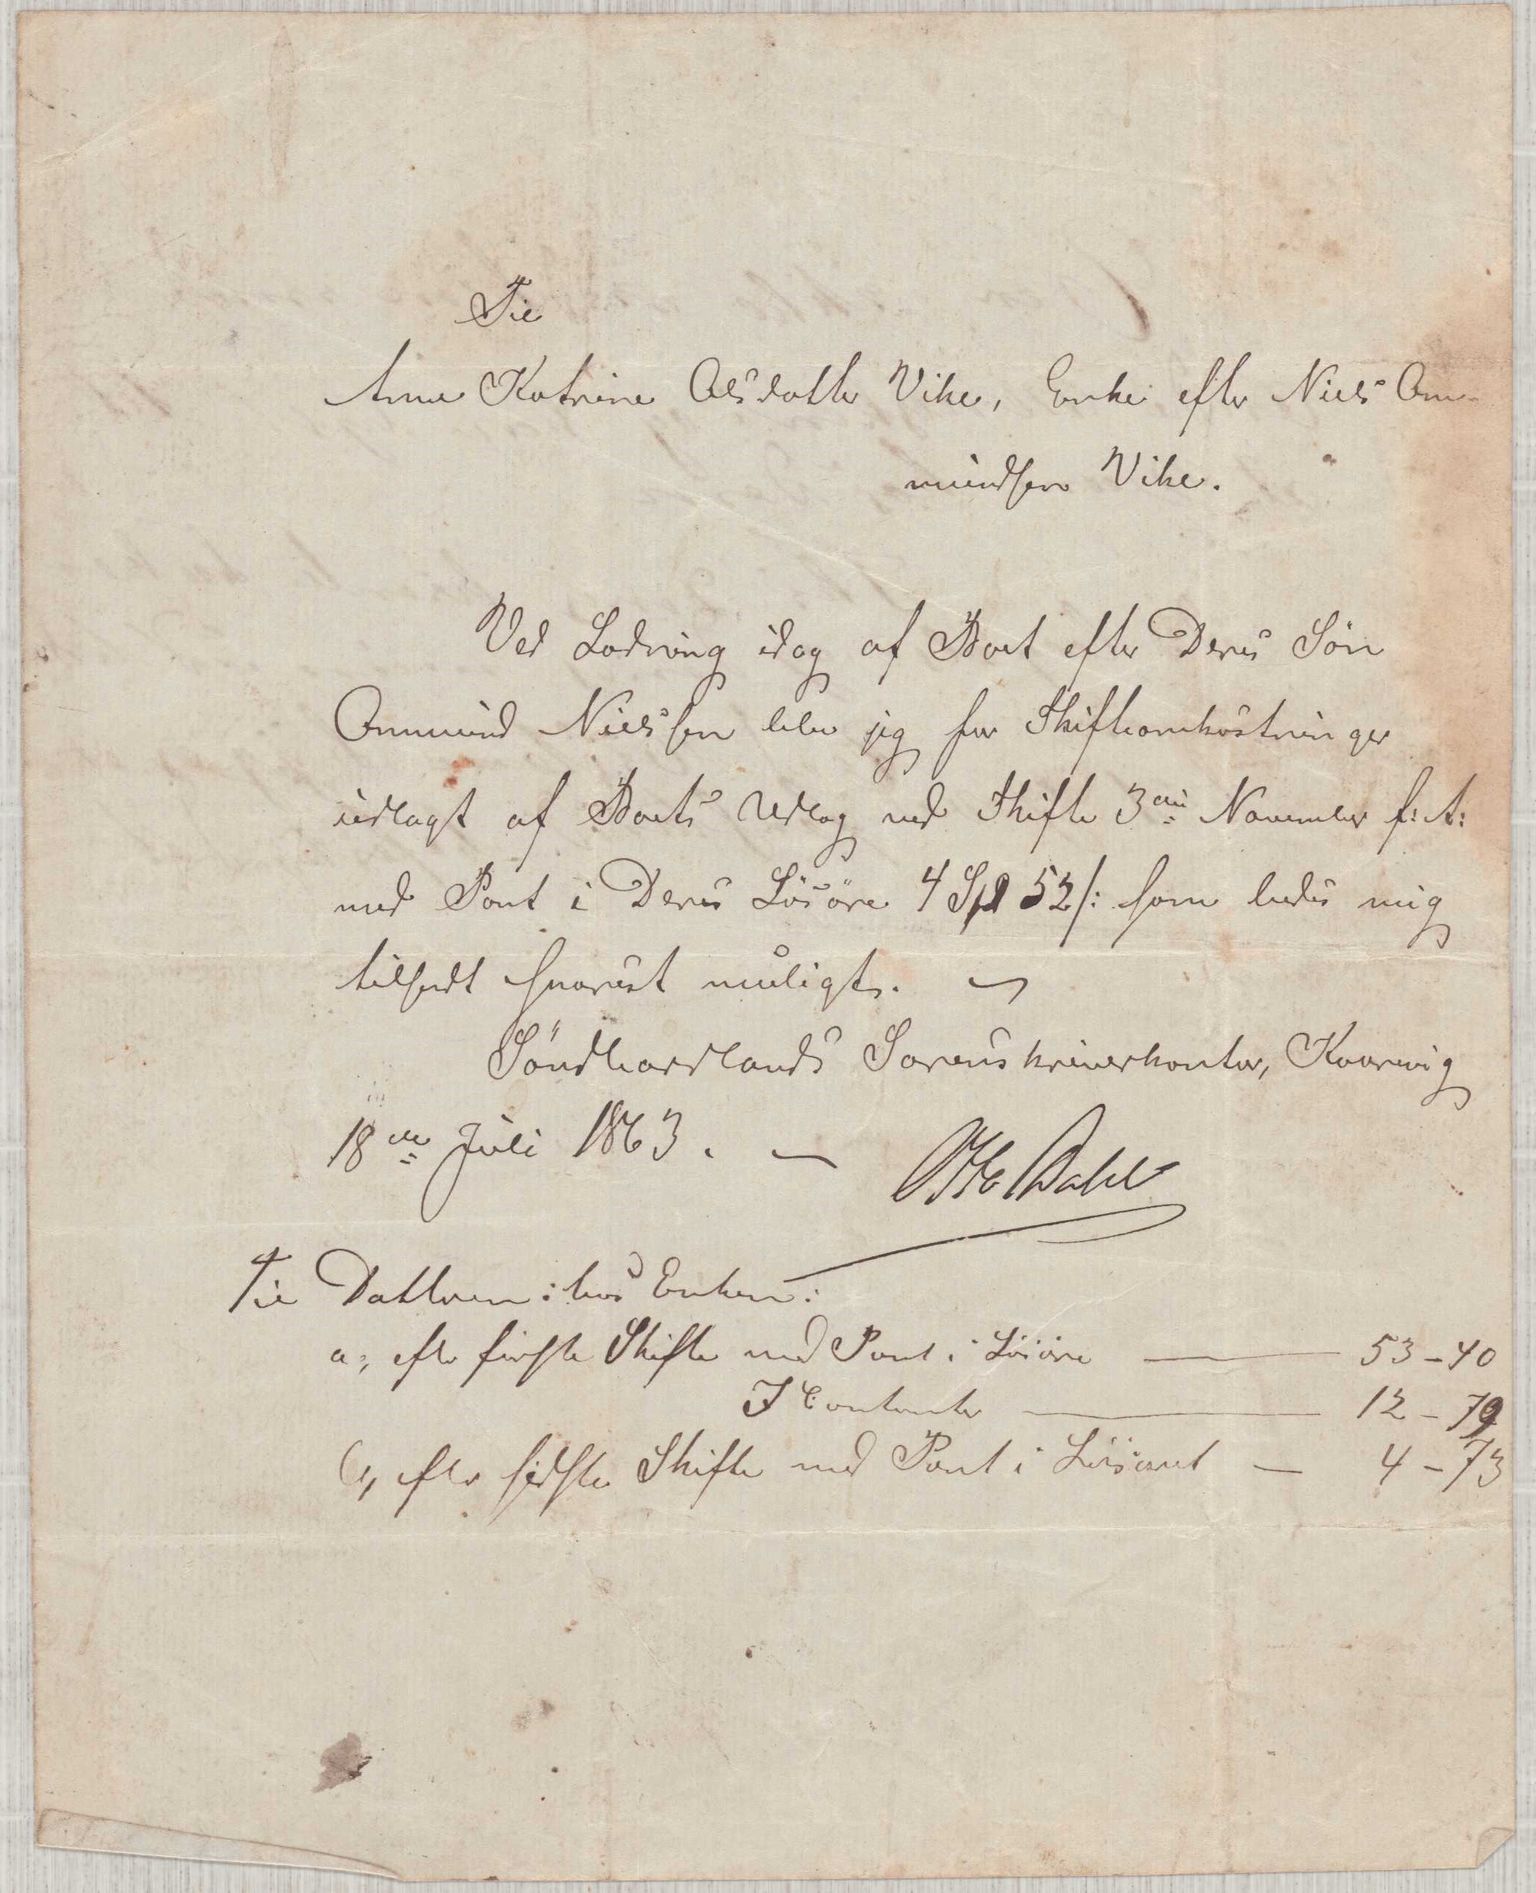 Til
Anna Katrine Olsdatter Vike, Enke efter Niels Om-
mundsen Vike.
Ved Lodning idag af Boet efter Deres Søn
Ommund Nielssen blev jeg for Skifteomkostninger
udlagt af Boets Udlæg ved Skifte 3die November f: A:
med Pant i Deres Løsøre 4 Spd 52 /: som bedes mig
tilsendt snarest muligt.
Søndhordlands Sorenskriverkontor, Kaarevig
18de Juli 1863.
Otto Dahl
Til Dattren: hos Enken:
a, efter første Skifte med Pant i Løsøre 53 - 40
I Contanter 12 - 79
b, efter sidste Skifte med Pant i Løsøret 4 - 73